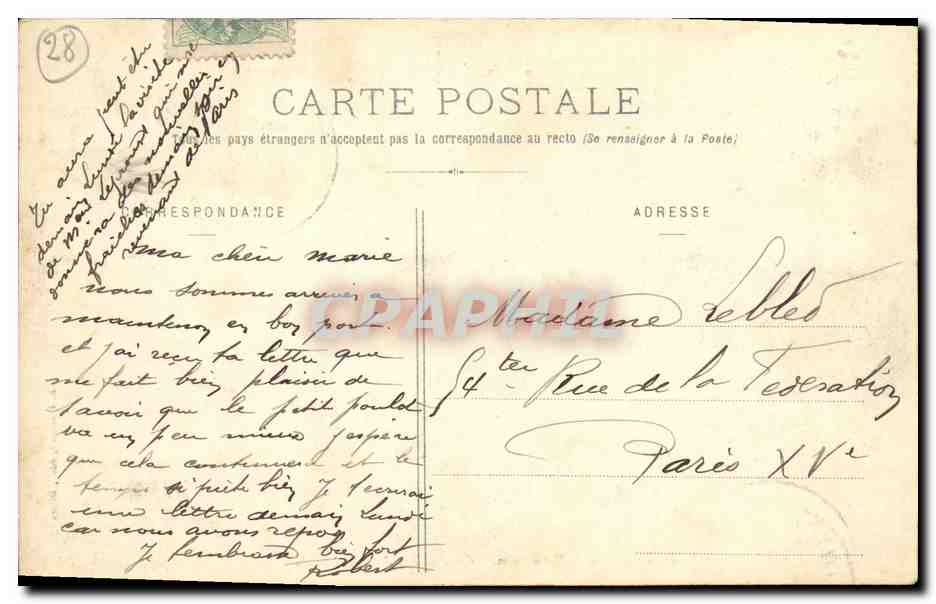 28
Tu aura peut être
demain lundi la visite
de Mont Leproust qui
donnera des nouvelles
fraîches demain soir en
revenant de Paris
CARTE POSTALE
Tous les pays étrangers n'acceptent pas la correspondance au recto (Se renseigner à la Poste)
CORRESPONDANCE
ma chèri marie
nous sommes arrivés a
maintenon en bon port.
et j'ai reçu ta lettre que
me fait bien plaisir de
savoir que le petit poulot
va un peu mieux j'espère
que cela continuera et le
temps si prête bien Je t'ecrirai
une lettre demain Lundi
car nous avons repos
Je t'embrasse bien fort
Robert
ADRESSE
Madame Lebled
54 ter Rue de la Federation
Paris XVe
CPARAMA